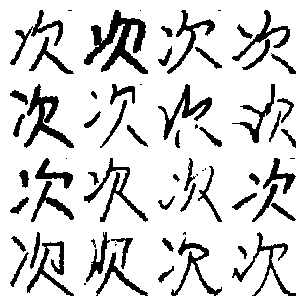 次次次次
次次次次
次次次次
次次次次